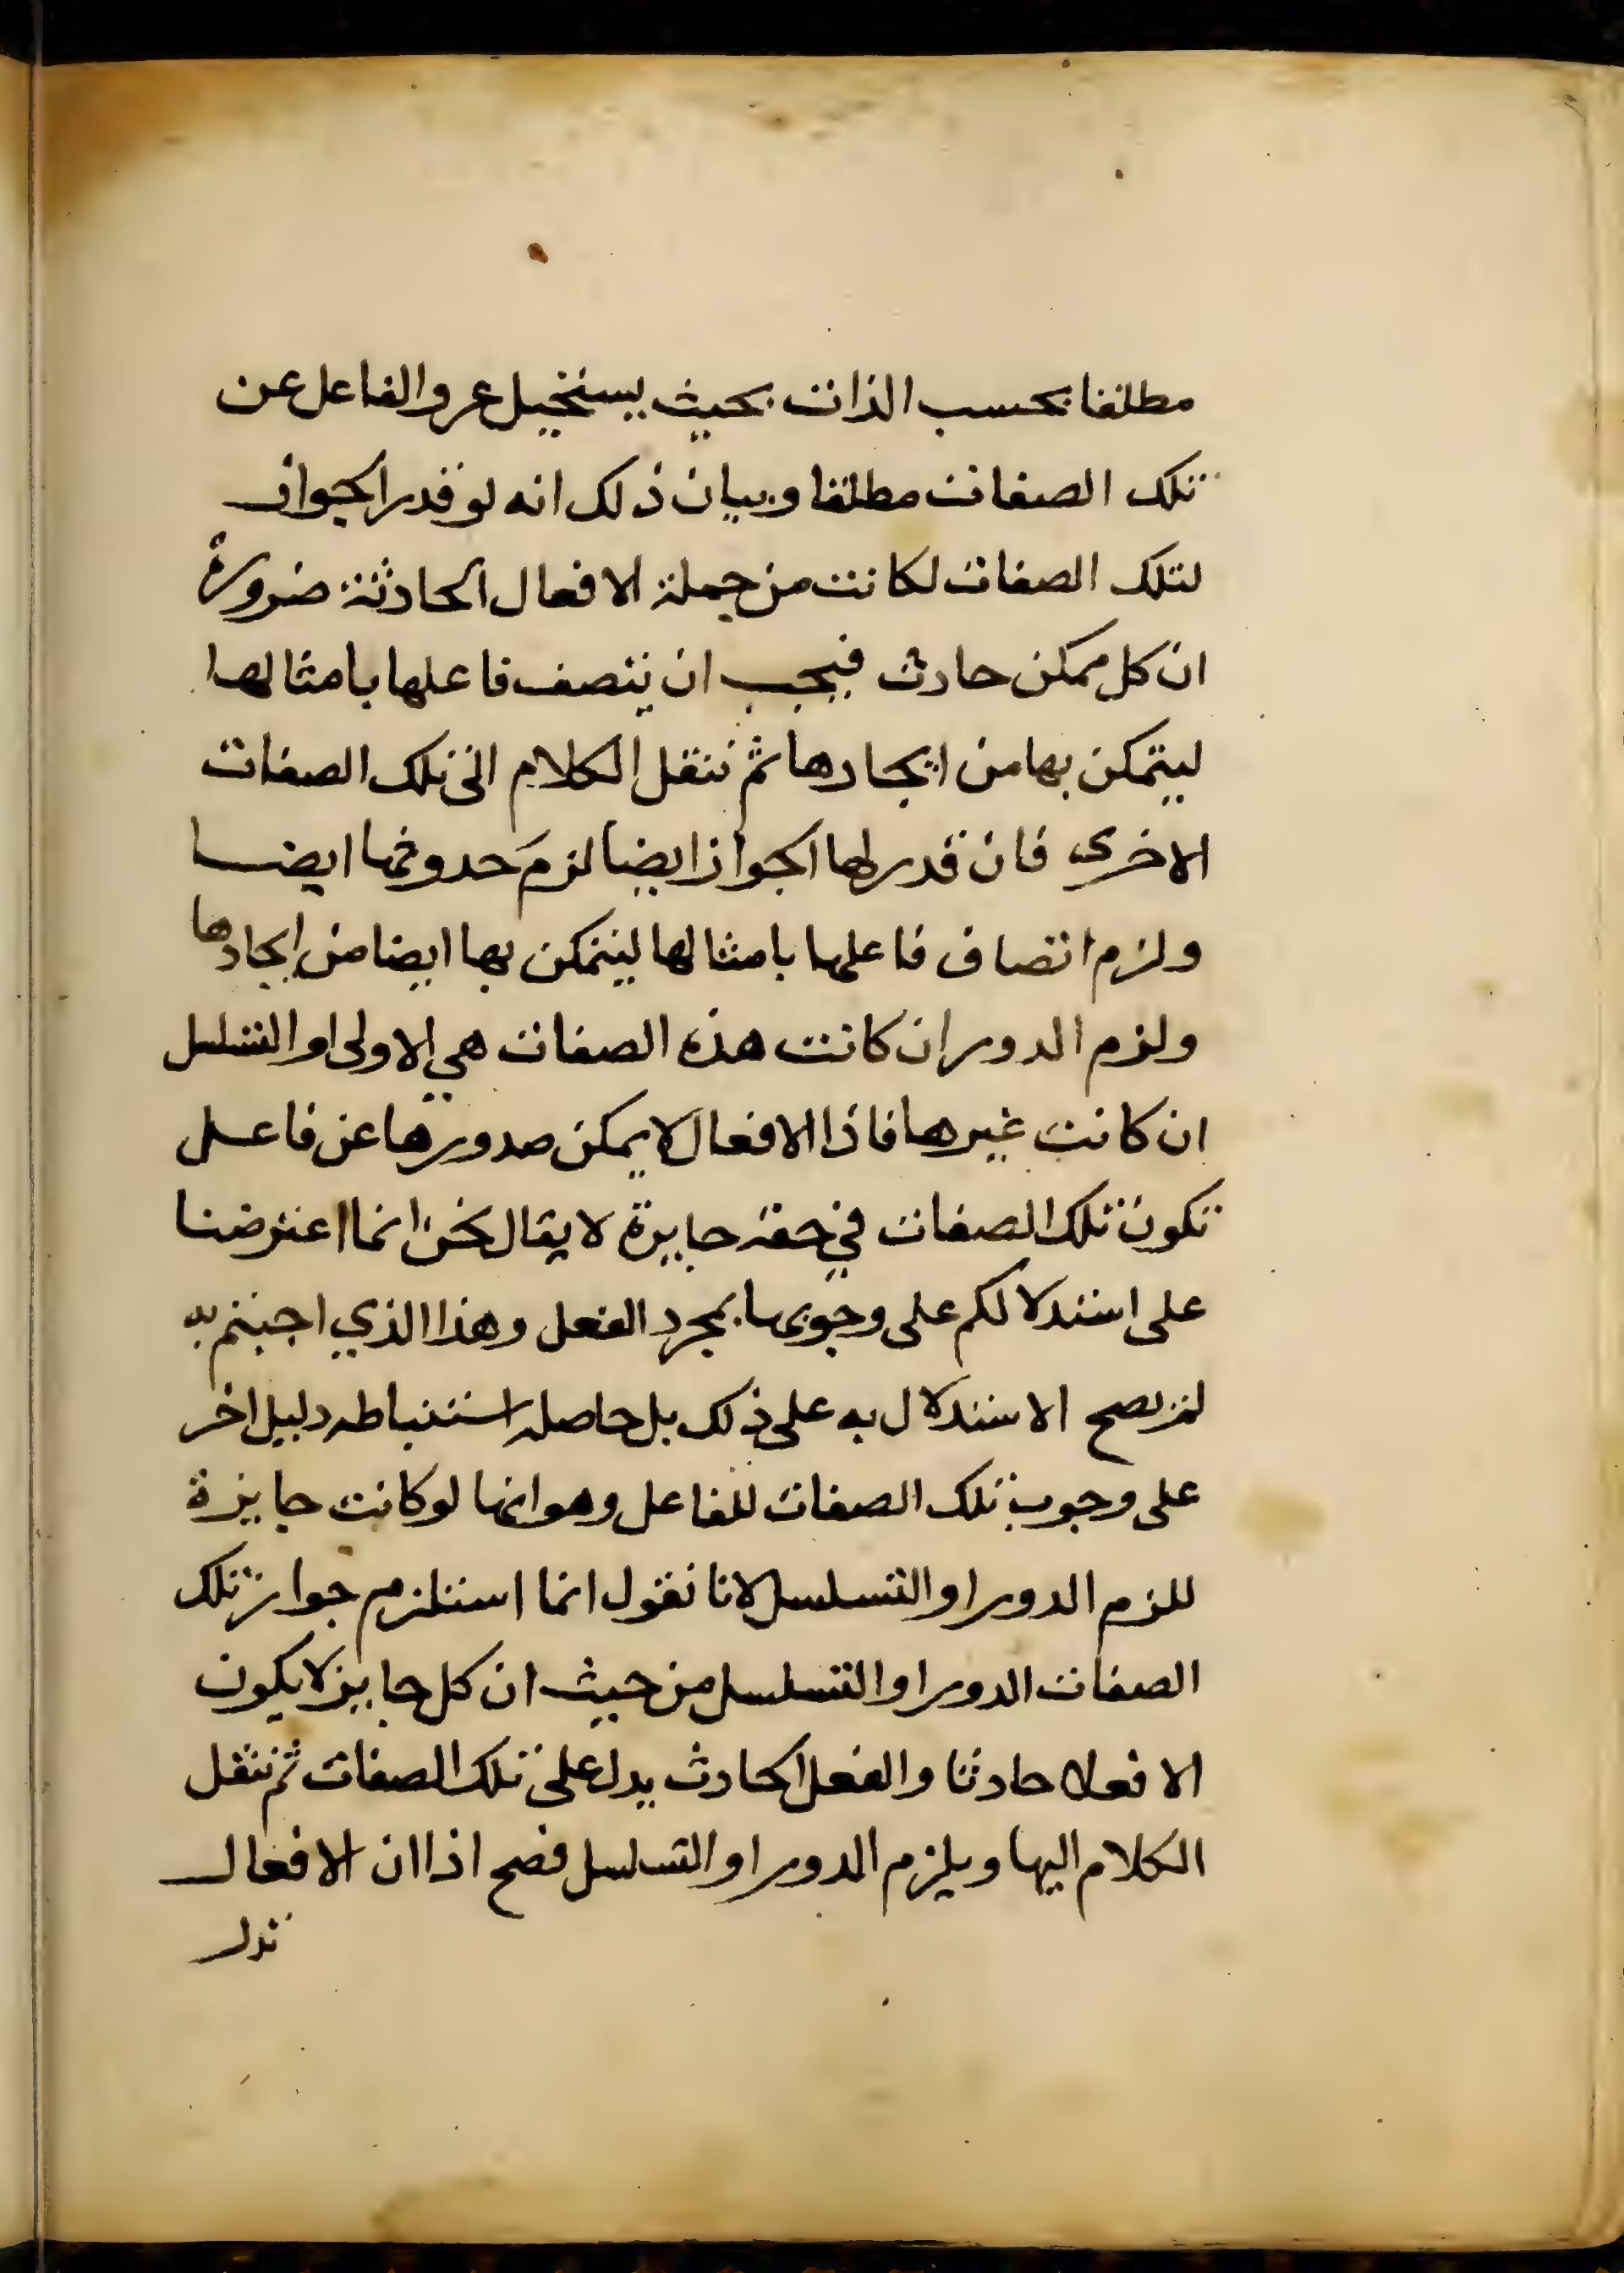 مطلقا بحسب الذات بحيث يستحيل عرو الفاعل عن
تلك الصفات مطلقا وبيان ذلك انه لو قدر الجواز
لتلك الصفات لكانت من جملة الافعال الحادثة ضرورة
ان كل ممكن حادث فيجب ان يتصف فاعلها بامثالها
ليتمكن بها من ايجادها ثم ننقل الكلام الى تلك الصفات
الاخرى فان قدر لها الجواز ايضا لزم حدوثها ايضا
ولزم اتصاف فاعلها بامثالها ليتمكن بها ايضا من ايجادها
ولزم الدور ان كانت هذه الصفات هي الاولى او التسلسل
ان كانت غيرها فاذا الافعال لا يمكن صدورها عن فاعل
تكون تلك الصفات في حقه جايزة لا يقال نحن انما اعترضنا
على استدلالكم على وجوبها بمجرد الفعل وهذا الذي اجبتم به
لم يصح الاستدلال به على ذلك بل حاصله استنباطه دليل اخر
على وجوب تلك الصفات للفاعل وهو انها لو كانت جايزة
للزم الدور او التسلسل لانا نقول انما استلزم جواز تلك
الصفات الدور او التسلسل من حيث ان كل جايز لا يكون
الا فعلا حادثا والفعل الحادث يدل على تلك الصفات ثم ننقل
الكلام اليها ويلزم الدور او التسلسل فصح اذا ان الافعال
تدل